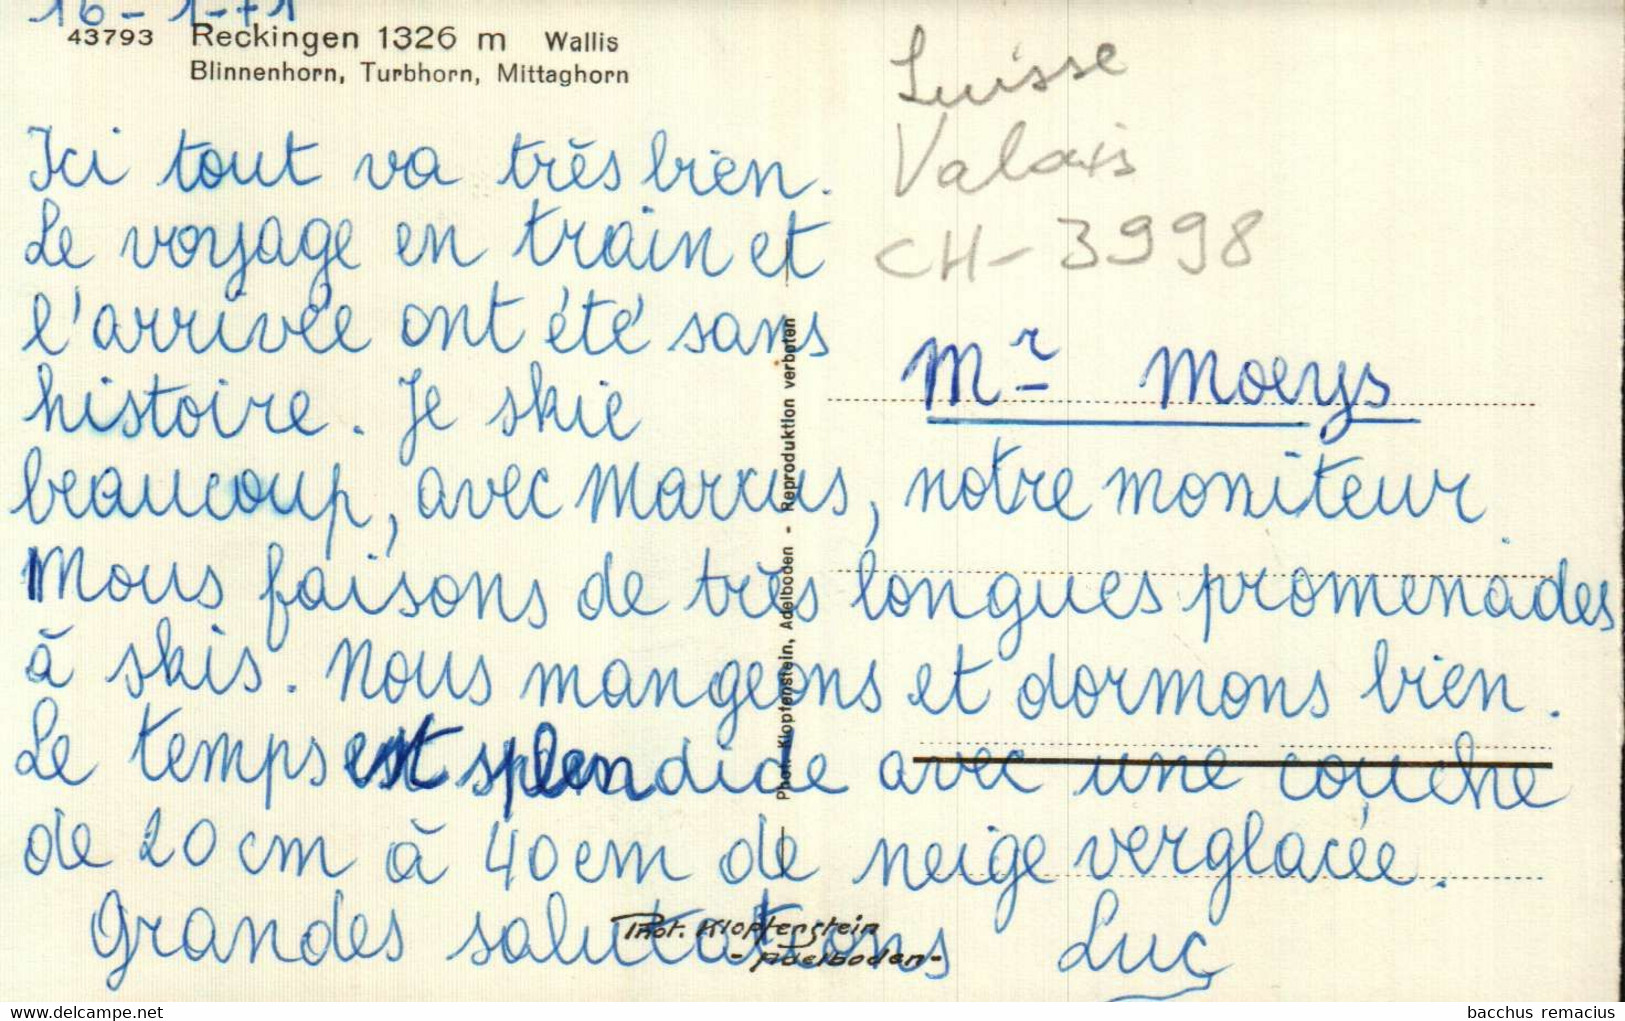 16-1-71
43793 Reckingen 1326 m Wallis
Blinnenhorn, Turbhorn, Mittaghorn
Suisse
Valais
CH-3998
Mr Moeys
Ici tout va très bien.
Le voyage en train et
l'arrivée ont été sans
histoire. Je skie
beaucoup, avec Marcus, notre moniteur
Nous faisons de très longues promenades
à skis. Nous mangeons et dormons bien.
Le temps est splendide avec une couche
de 20 cm à 40 cm de neige verglacée.
Grandes salutations Luc
Phot. Klopfenstein, Adelboden - Reproduktion verboten
Phot. Klopfenstein
- Adelboden -
www.delcampe.net
bacchus remacius